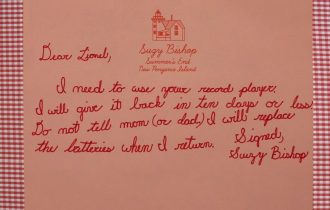 Suzy Bishop
Summer's End
New Penzance Island
Dear Lionel,
I need to use your record player.
I will give it back in ten days or less.
Do not tell mom (or dad.) I will replace
the batteries when I return. Signed,
Suzy Bishop